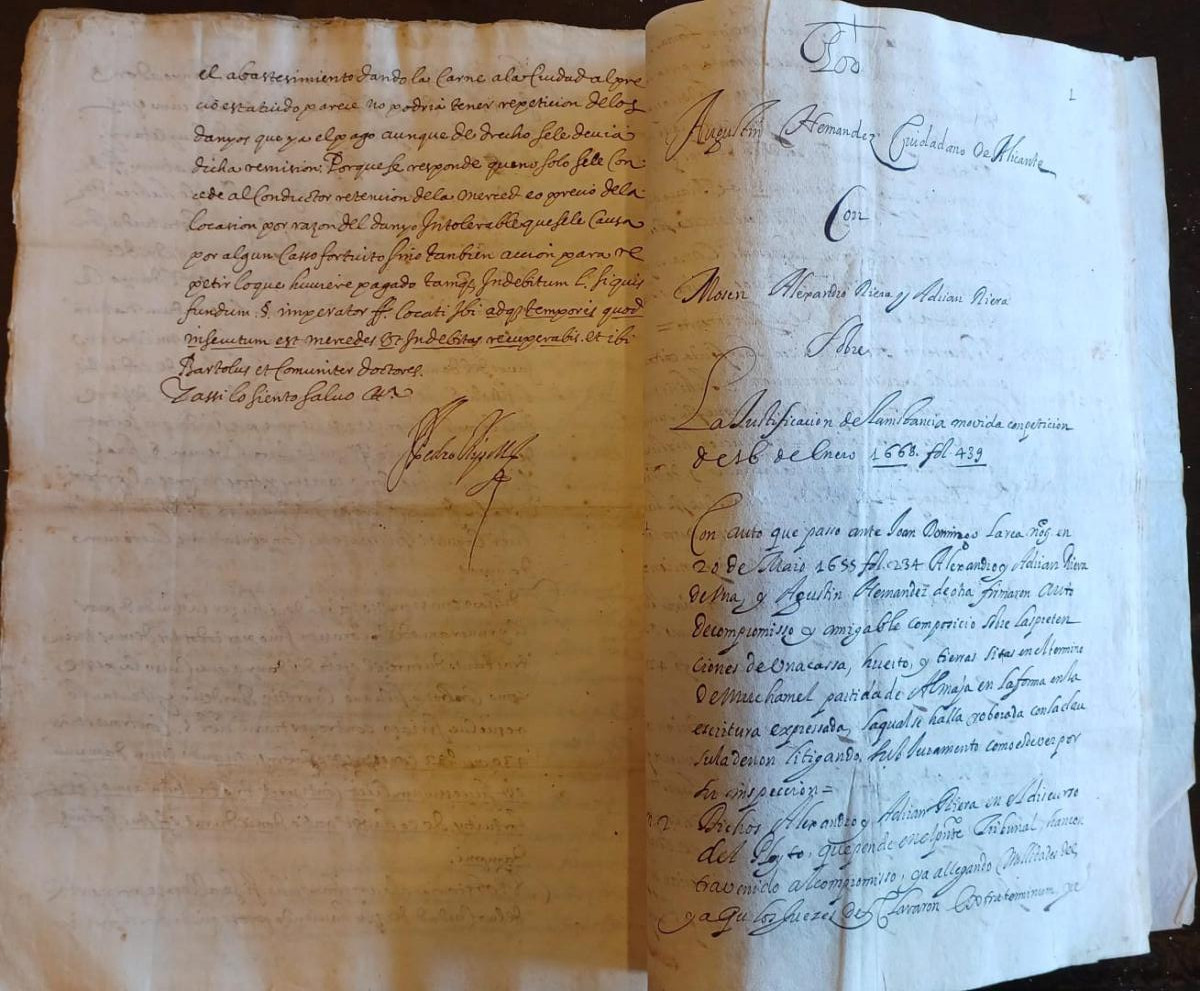 el abastesimiento dando la Carne a la Ciudad al pre
cio estatuido parece no podria tener repeticion de los
danyos que ya el pago aunque de drecho se le devia
dicha remision. Porque se responde que no solo se le Con
cede al Conductor retencion de la merced eo precio de la
locasion por razon del danyo Intolerable que se le Causa
por algun Casso fortuito sino tanbien accion para re
petir lo que huviere pagado tamq̃ Indebitum l. si quis
fundum §. imperator ff. locati ibi adq̃ temporis quod
insecutum est mercedes Vt Indebitas recuperabis. et ibi
Bartolus et Comuniter doctores.
Y assi lo siento salvo &tª
Por
1
Augustin Hernandez Ciudadano de Alicante
Con
Mosen Alexandro Riera y Adrian Riera
Sobre
La Justificacion de la instancia movida con peticion
de 16 de Enero 1668. fol 439
Con auto que passo ante Joan Domingo Larea noţ en
20 de Maio 1655 fol. 234 Alexandro y Adrian Riera
de una, y Agustin Hernandez de otra firmaron auto
de compromisso y amigable composicio sobre las preten
ciones de una cassa, huerto, y tierras sitas en el termino
de Marchamel partida de Almaja en la forma en la
escritura expressada, la qual se halla roborada con la clau
sula de non litigando, sub Juramento como es de ver por
su inspeccion =
n. 2 Dichos Alexandro y Adrian Riera en el discurso
del Pleyto, que pende en el pnte Tribunal, han con
travenido al compromisso, ya allegando Nullidades del,
ya que los Juezes declararon extra terminum, ya